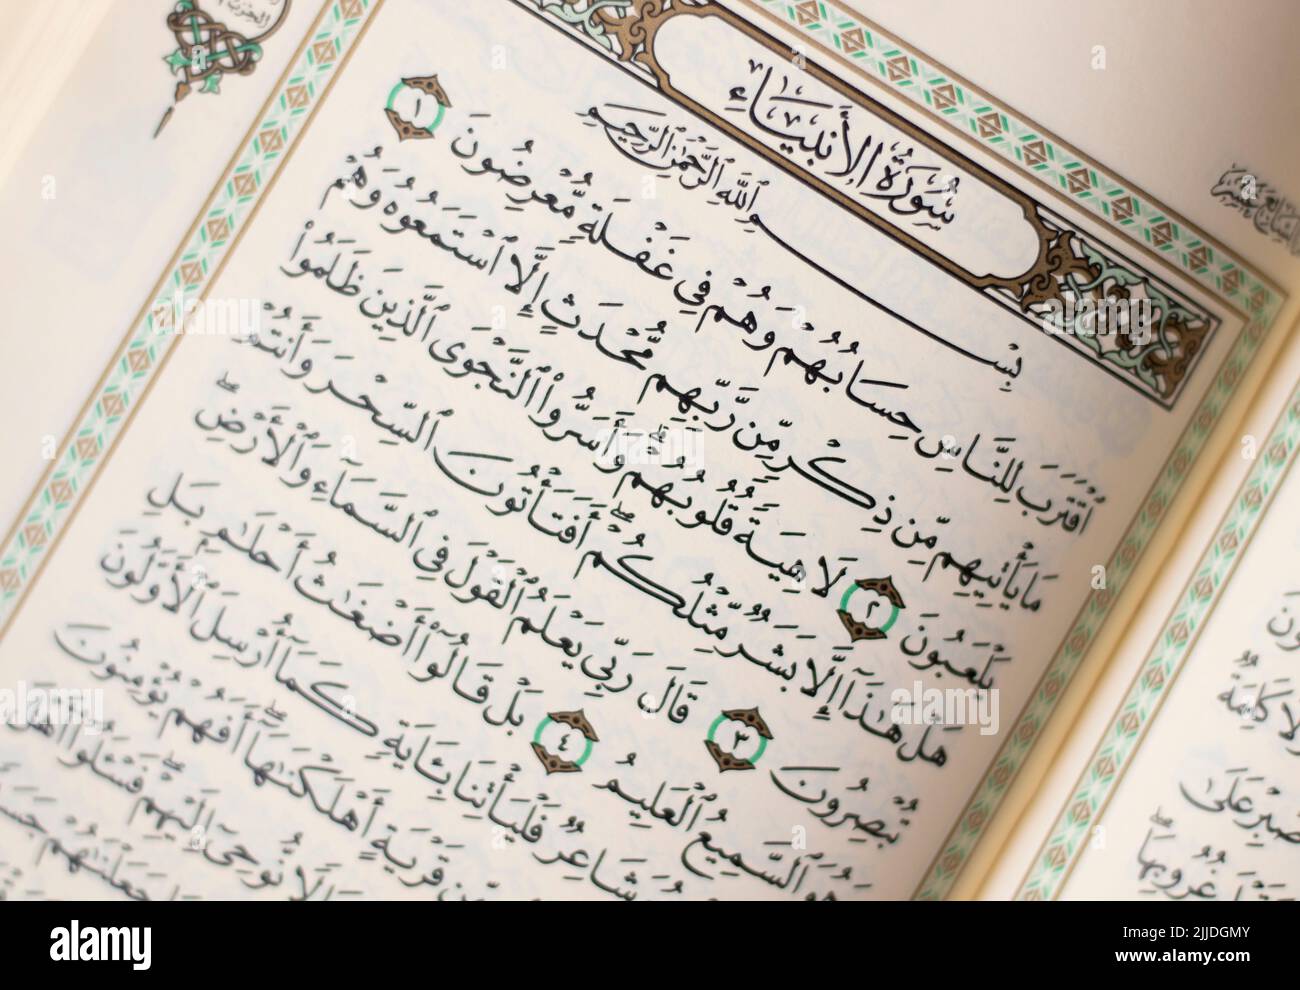 سُورَةُ الأَنبِيَاءِ
بِسْمِ ٱللَّهِ ٱلرَّحْمَٰنِ ٱلرَّحِيمِ
ٱقْتَرَبَ لِلنَّاسِ حِسَابُهُمْ وَهُمْ فِي غَفْلَةٍ مُّعْرِضُونَ ١
مَا يَأْتِيهِم مِّن ذِكْرٍ مِّن رَّبِّهِم مُّحْدَثٍ إِلَّا ٱسْتَمَعُوهُ وَهُمْ
يَلْعَبُونَ ٢ لَاهِيَةً قُلُوبُهُمْ ۗ وَأَسَرُّوا۟ ٱلنَّجْوَى ٱلَّذِينَ ظَلَمُوا۟
هَلْ هَٰذَآ إِلَّا بَشَرٌ مِّثْلُكُمْ ۖ أَفَتَأْتُونَ ٱلسِّحْرَ وَأَنتُمْ
تُبْصِرُونَ ٣ قَالَ رَبِّي يَعْلَمُ ٱلْقَوْلَ فِي ٱلسَّمَآءِ وَٱلْأَرْضِ ۖ
وَهُوَ ٱلسَّمِيعُ ٱلْعَلِيمُ ٤ بَلْ قَالُوٓا۟ أَضْغَٰثُ أَحْلَٰمٍۭ بَلِ
هُوَ شَاعِرٌ فَلْيَأْتِنَا بِـَٔايَةٍ كَمَآ أُرْسِلَ ٱلْأَوَّلُونَ
مِّن قَرْيَةٍ أَهْلَكْنَٰهَآ ۖ أَفَهُمْ يُؤْمِنُونَ
إِلَّا نُّوحِىٓ إِلَيْهِمْ ۖ فَسْـَٔلُوٓا۟ أَهْلَ
جَعَلْنَٰهُمْ
كَلِمَةٌ
فَٱصْبِرْ عَلَىٰ
غُرُوبِهَا
alamy
Image ID: 2JJDGMY
www.alamy.com